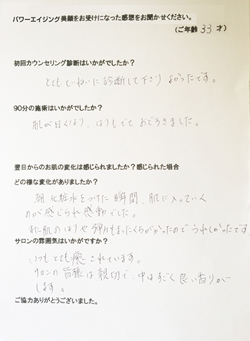 パワーエイジング美顔をお受けになった感想をお聞かせください。
(ご年齢 33 才)
初回カウンセリング診断はいかがでしたか?
とてもていねいに診断して下さりよかったです。
90分の施術はいかがでしたか?
肌が甘くなり、はりもでておどろきました。
翌日からのお肌の変化は感じられましたか?感じられた場合
どの様な変化がありましたか?
朝、化粧水をつけた瞬間、肌に入っていく
のが感じられ感動でした。
また肌のはりや弾力もまったくちがかったのでうれしかったです
サロンの雰囲気はいかがですか?
いつもとても癒されています。
サロンの皆様は親切で、中はすごく良い香りが
します。
ご協力ありがとうございました。